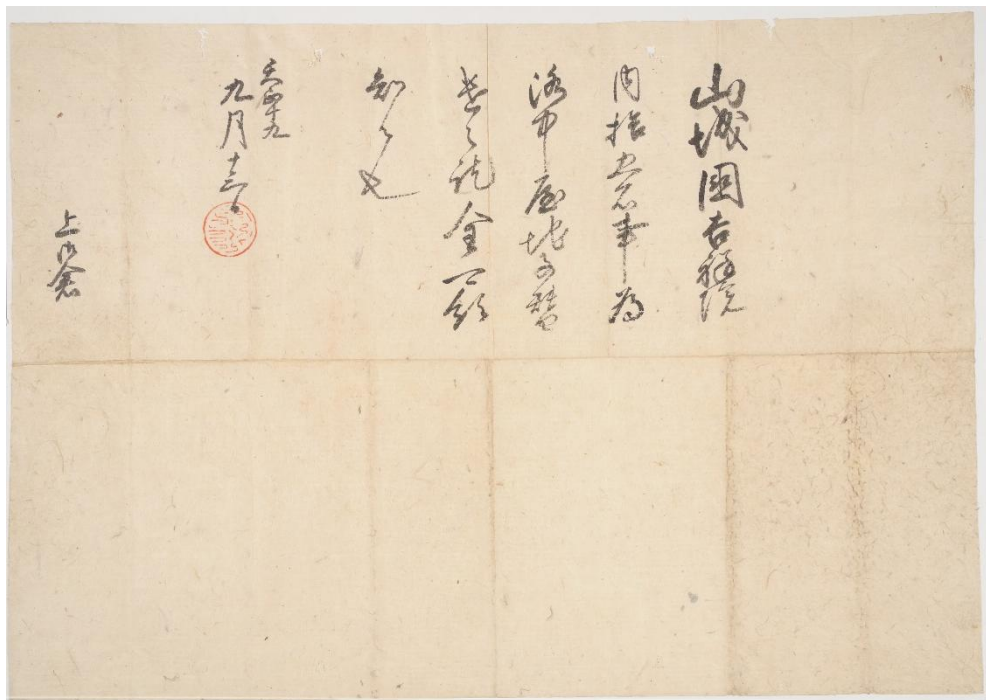 山城國吉祥院
内拾五石事為
洛中屋地子替
遣之訖全可領
知候也
天正十九
九月十三日
上御倉